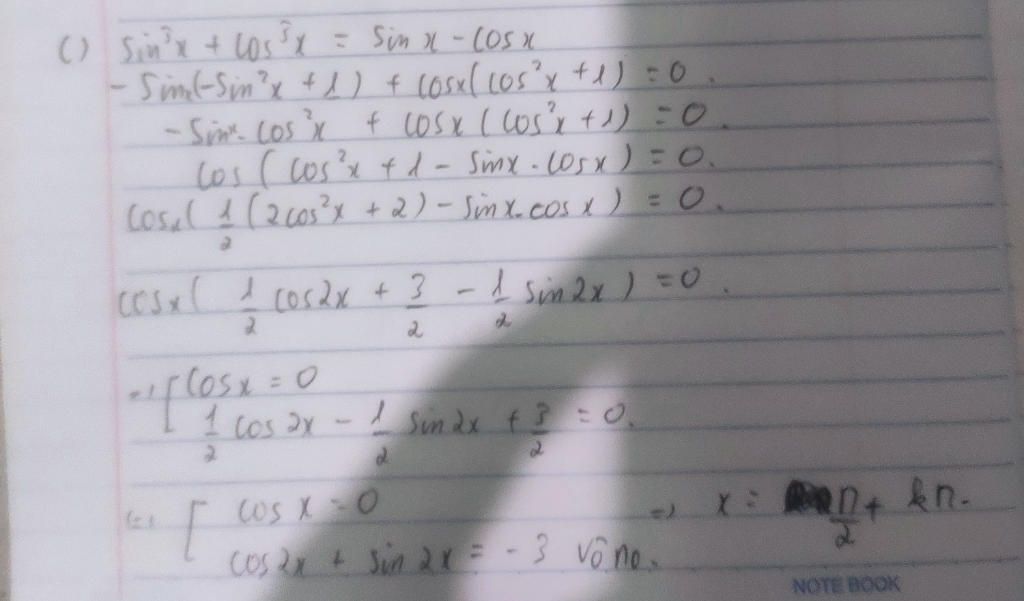 c) sin³x + cos³x = sin x - cosx
- Sinx(-Sin²x + 1) + cosx(cos²x + 1) = 0.
- Sinx. cos²x + cosx (cos²x + 1) = 0.
cos ( cos²x + 1 - sinx . cosx ) = 0.
cosx( 1/2 (2cos²x + 2) - sinx.cos x ) = 0.
cosx ( 1/2 cos2x + 3/2 - 1/2 sin2x ) = 0.
=> [ cosx = 0
1/2 cos 2x - 1/2 sin2x + 3/2 = 0.
(=) [ cos x = 0 => x = π/2 + kπ.
cos2x + sin 2x = -3 vô no.
NOTE BOOK